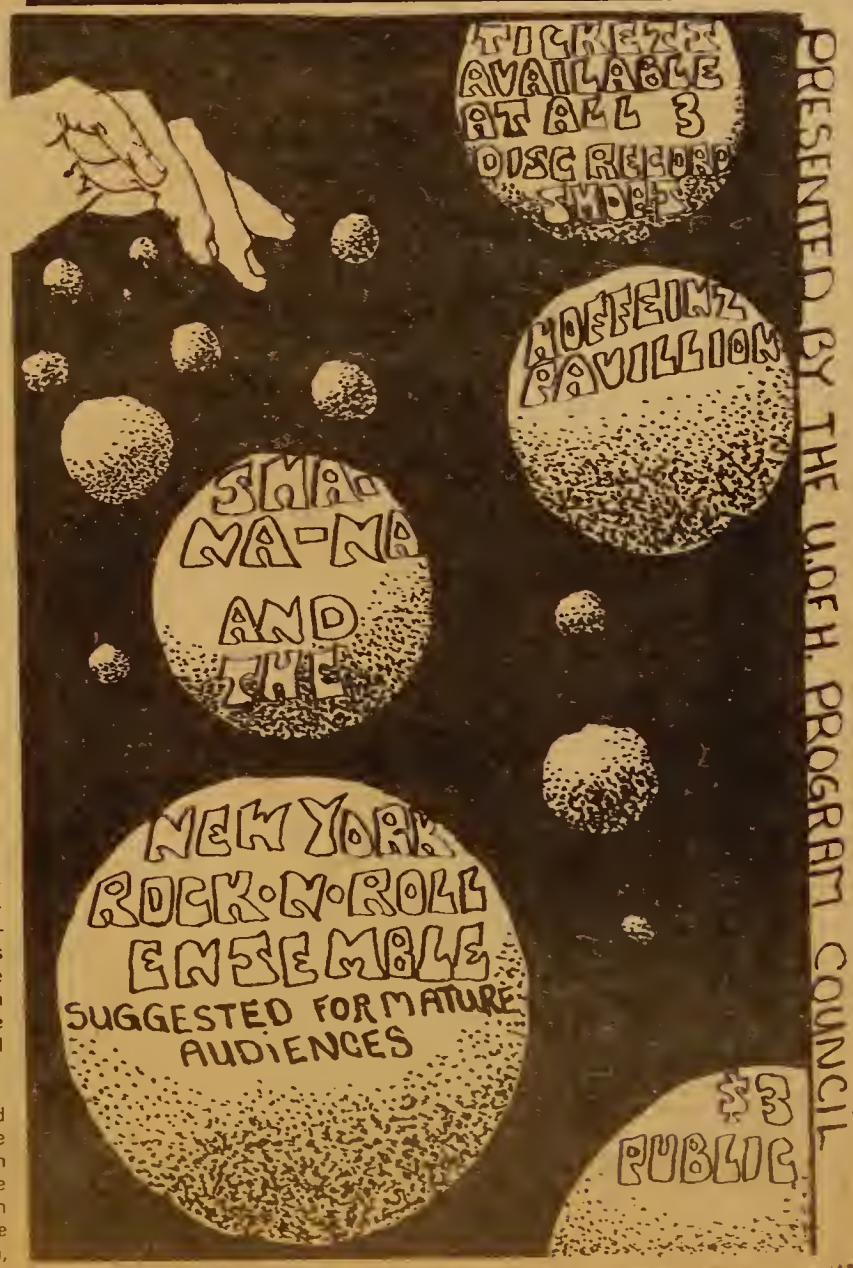 TICKETS
AVAILABLE
AT ALL 3
DISC RECORD
SHOPS
HOFFEINZ
PAVILLION
SHA-
NA-NA
AND
THE
NEW YORK
ROCK·N·ROLL
ENSEMBLE
SUGGESTED FOR MATURE
AUDIENCES
$3
PUBLIC
PRESENTED BY THE U.OF H. PROGRAM COUNCIL